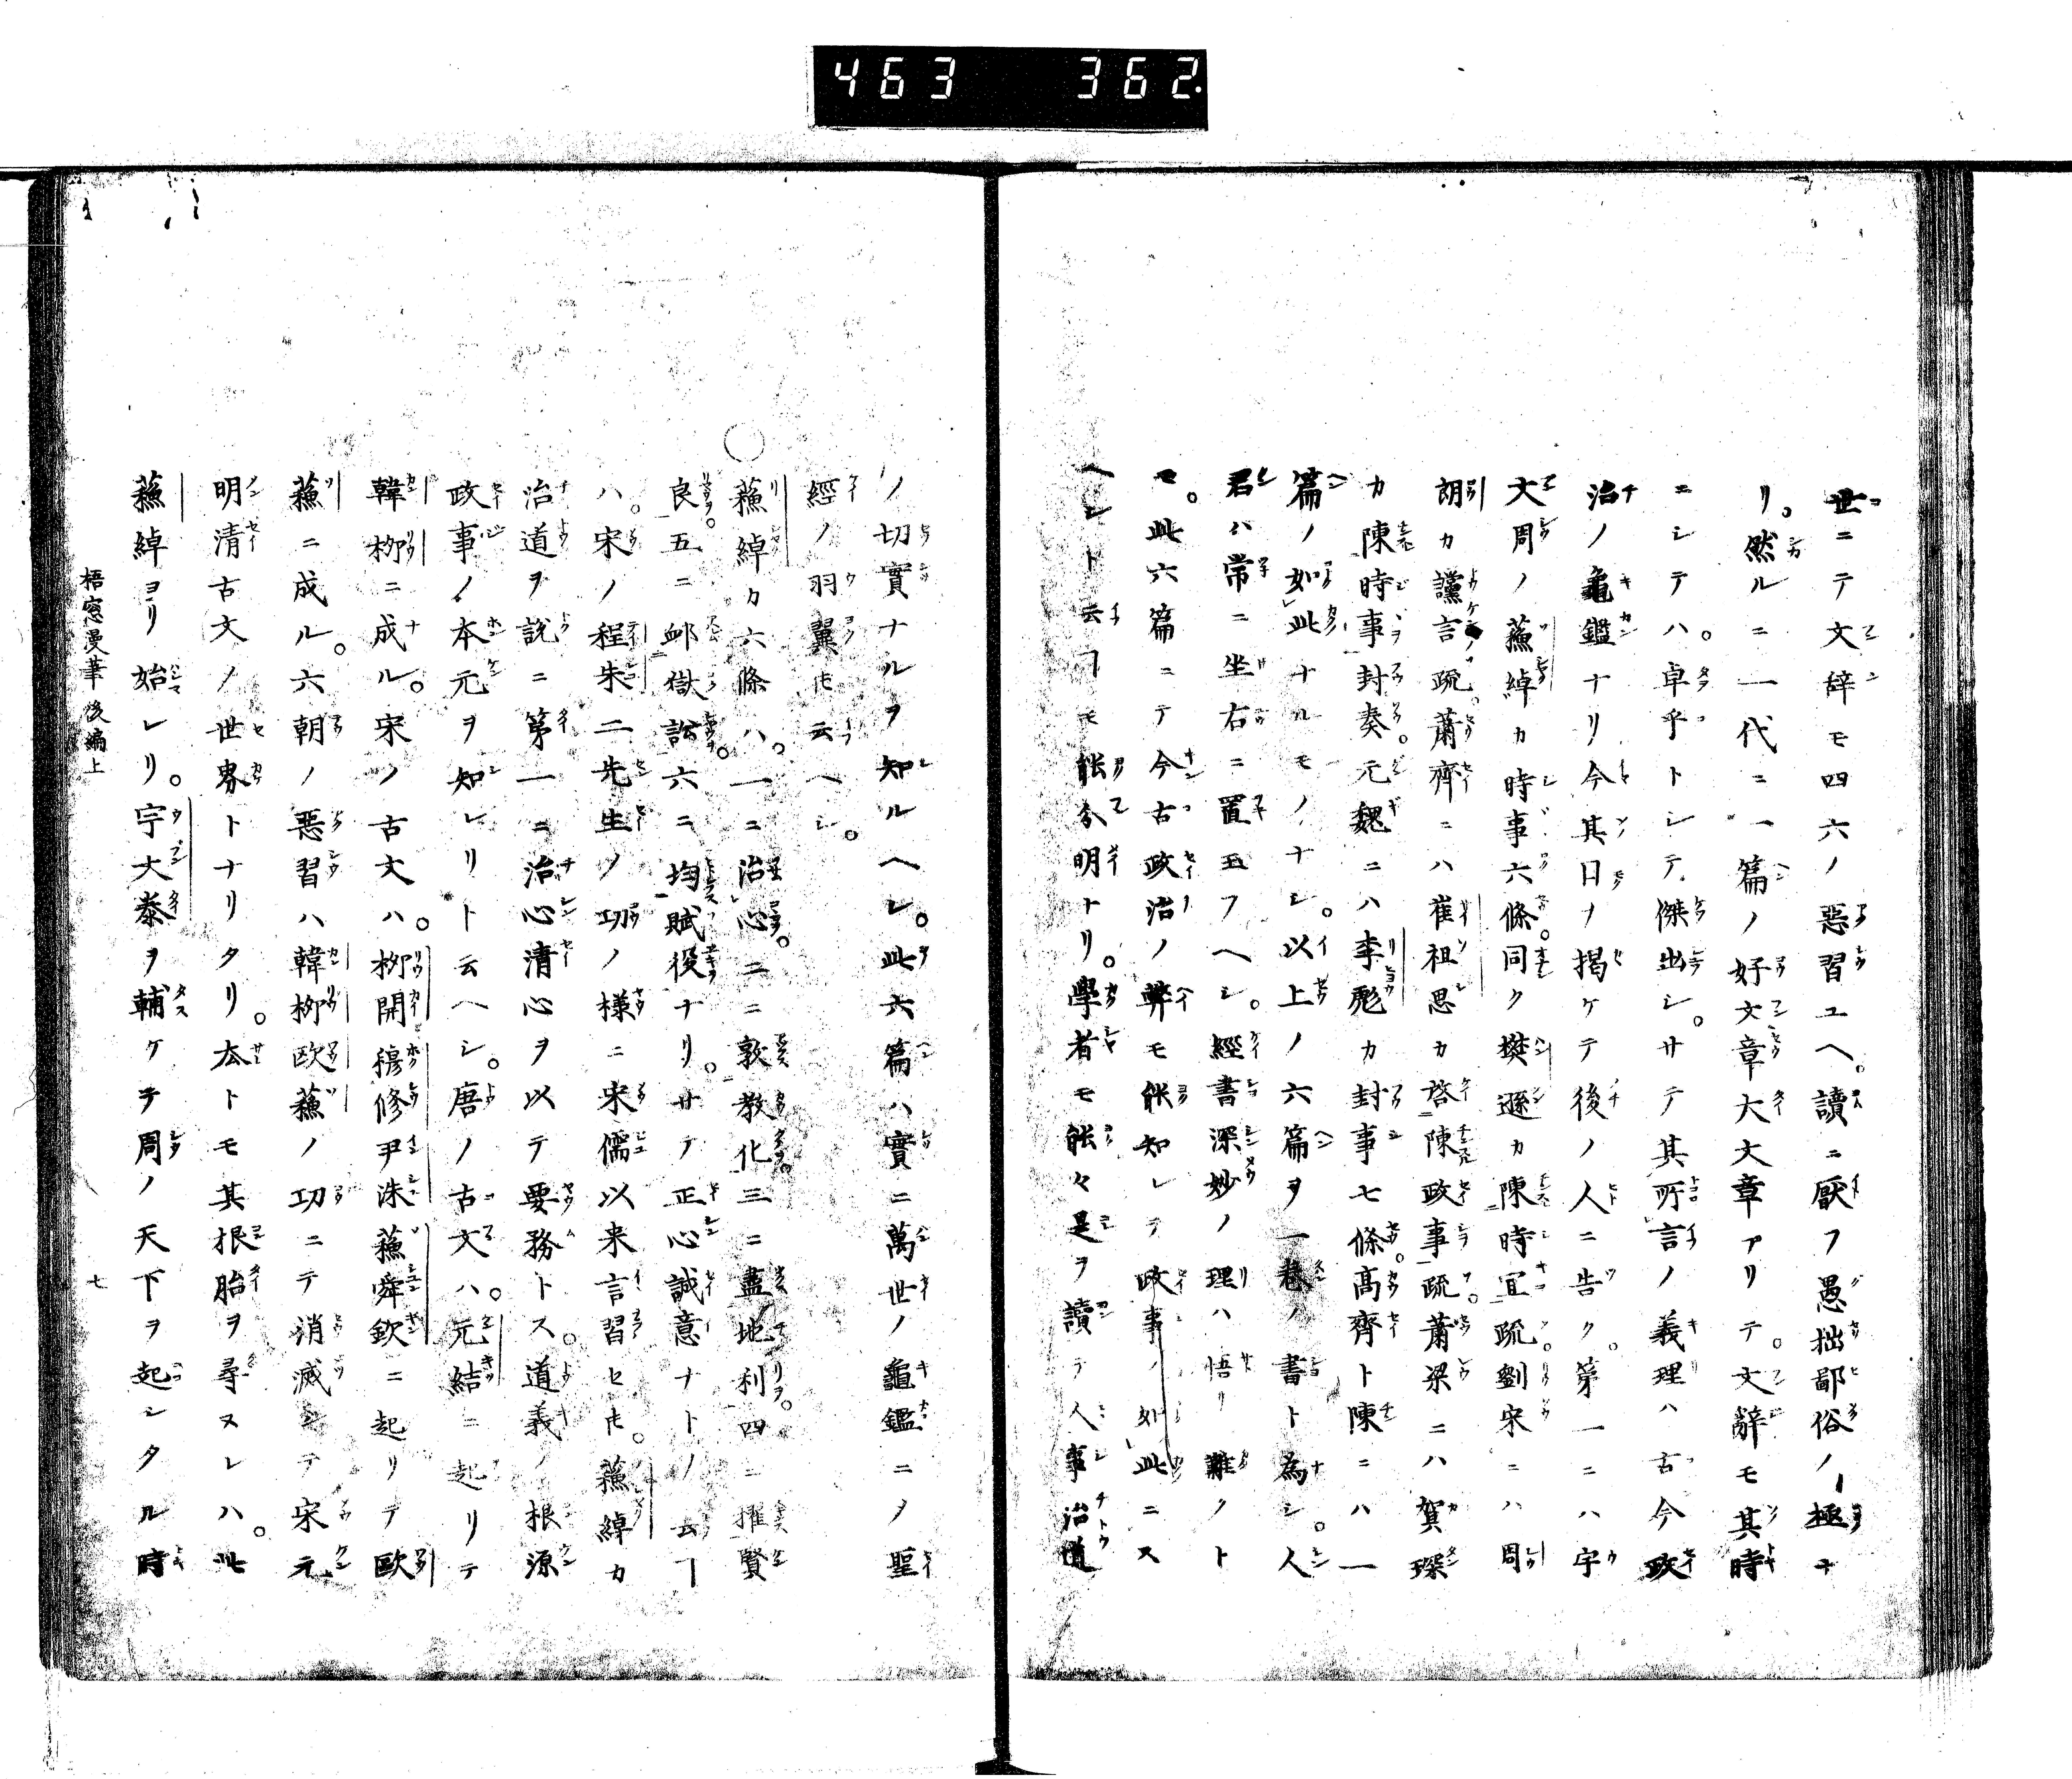 463 362.
世ニテ文辞モ四六ノ惡習ユヘ。讀ニ厭フ愚拙鄙俗ノ極ナ
リ。然ルニ一代ニ一篇ノ好文章大文章アリテ。文辭モ其時
ニシテハ。卓乎トシテ傑出シ。サテ其所言ノ義理ハ古今政
治ノ龜鑑ナリ今其目ヲ掲ケテ後ノ人ニ告ク。第一ニハ宇
文周ノ蘓綽カ時事六條。同ク樊遜カ陳時宜疏劉宋ニハ周
朗カ讜言疏。蕭齊ニハ崔祖思カ啓陳政事疏。蕭梁ニハ賀琛
カ陳時事封奏。元魏ニハ李彪カ封事七條。髙齊ト陳ニハ一
篇ノ如此ナルモノナシ。以上ノ六篇ヲ一巻ノ書ト為シ。人
君ハ常ニ坐右ニ置玉フヘシ。經書深妙ノ理ハ悟リ難クト
モ。此六篇ニテ今古政治ノ弊モ能知レテ政事ノ如此ニス
ヘシト云ヿモ能分明ナリ。學者モ能々是ヲ讀テ人事治道
ノ切實ナルヲ知ルヘシ。此六篇ハ實ニ萬世ノ龜鑑ニノ聖
經ノ羽翼𪜈云ヘシ。
〇蘓綽カ六條ハ。一ニ治心。二ニ敦教化三ニ盡地利。四ニ擢賢
良。五ニ衈獄訟。六ニ均賦役ナリ。サテ正心誠意ナトノ云ヿ
ハ。宋ノ程朱二先生ノ功ノ様ニ宋儒以来言習セ𪜈。蘓綽カ
治道ヲ説ニ第一ニ治心清心ヲ以テ要務トス。道義ノ根源
政事ノ本元ヲ知レリト云ヘシ。唐ノ古文ハ。元結ニ起リテ
韓栁ニ成ル。宋ノ古文ハ。栁開穆修尹洙蘓舜欽ニ起リテ歐
蘓ニ成ル。六朝ノ惡習ハ韓栁歐蘓ノ功ニテ消滅シテ宋元
明清古文ノ世界トナリタリ。去トモ其根胎ヲ尋ヌレハ。此
蘓綽ヨリ始レリ。宇文泰ヲ輔ケテ周ノ天下ヲ起シタル時
梧窓漫筆後編上 七